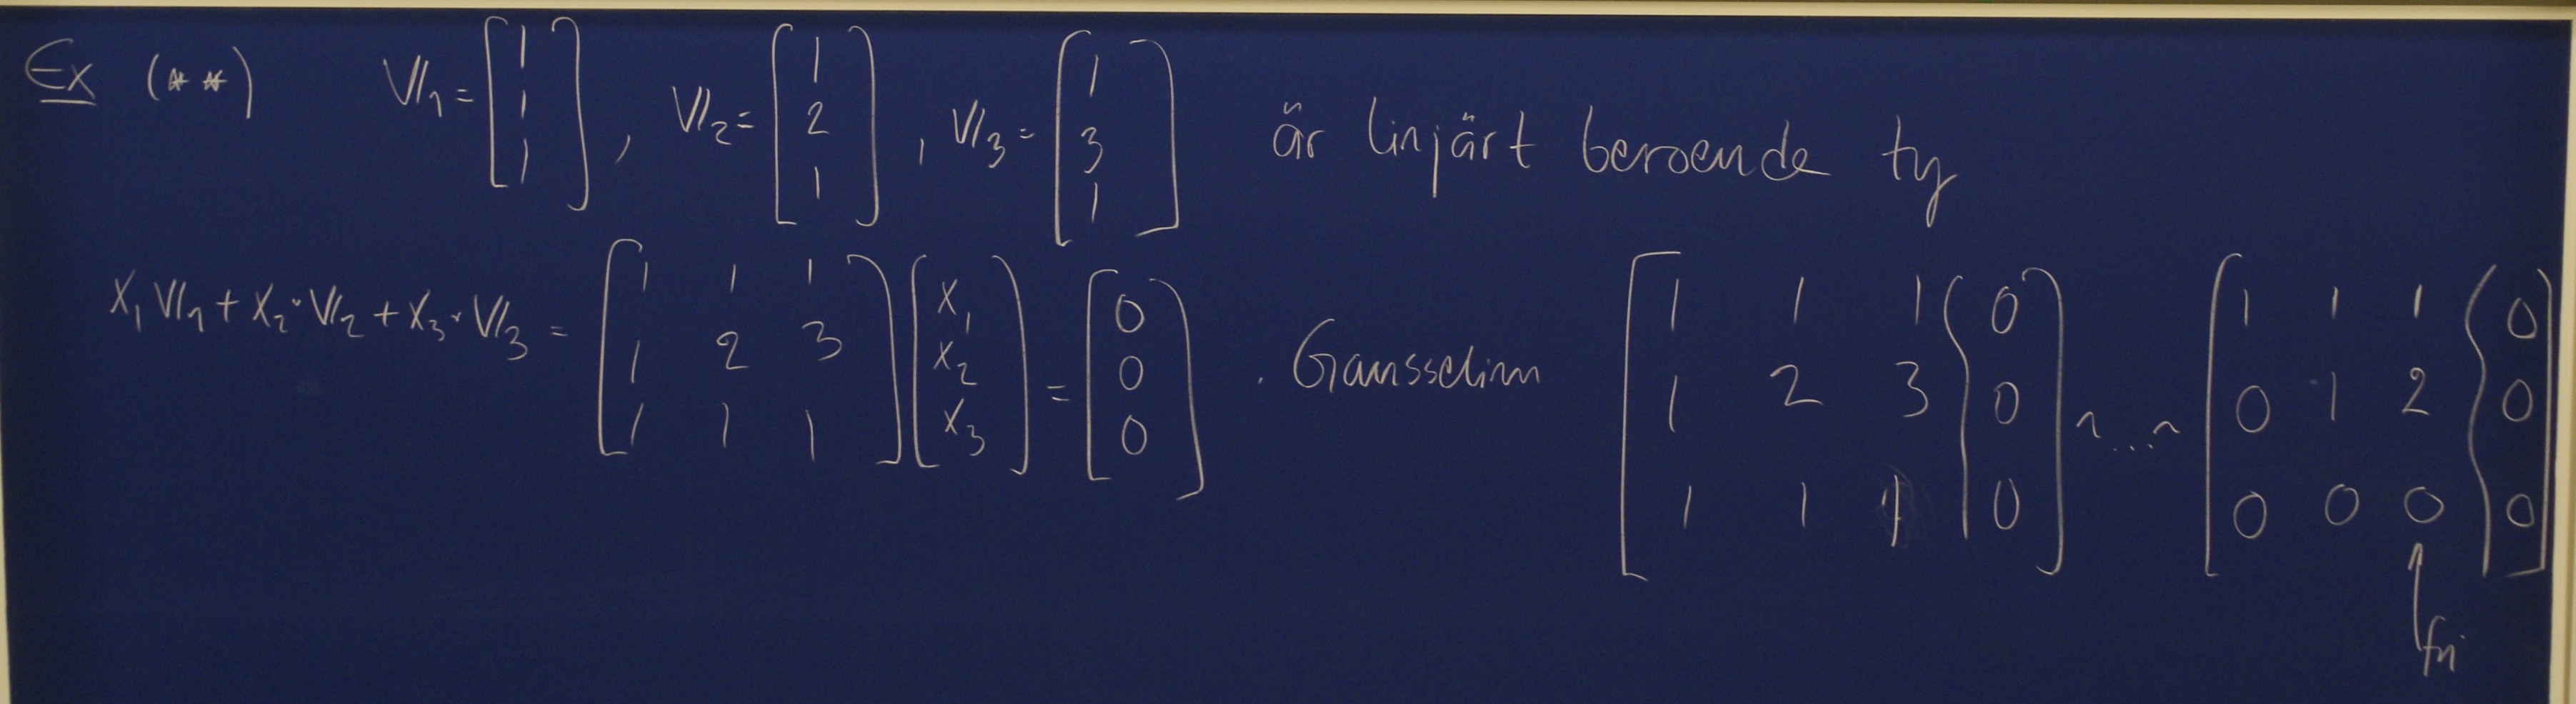 Ex (**) V₁ = [1 1 1], V₂ = [1 2 1], V₃ = [1 3 1] är linjärt beroende ty
x₁V₁ + x₂·V₂ + x₃·V₃ = [1 1 1; 1 2 3; 1 1 1] [x₁ x₂ x₃] = [0 0 0]. Gausselim [1 1 1 | 0; 1 2 3 | 0; 1 1 1 | 0] ~ ... ~ [1 1 1 | 0; 0 1 2 | 0; 0 0 0 | 0]
↑ fri